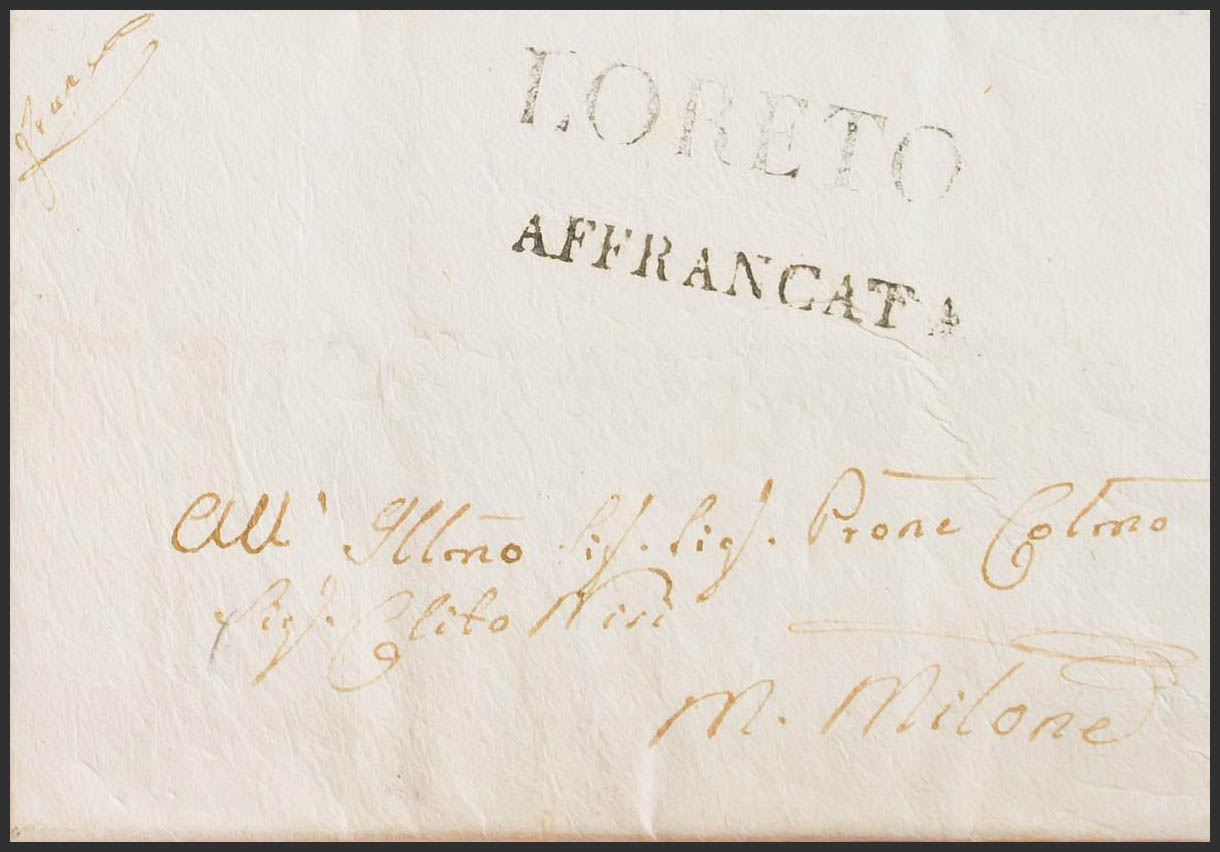 Franca
LORETO
AFFRANCATA
All' Illmo Sig. Sig. Prone Colmo
Sig. Clito
M. Milone